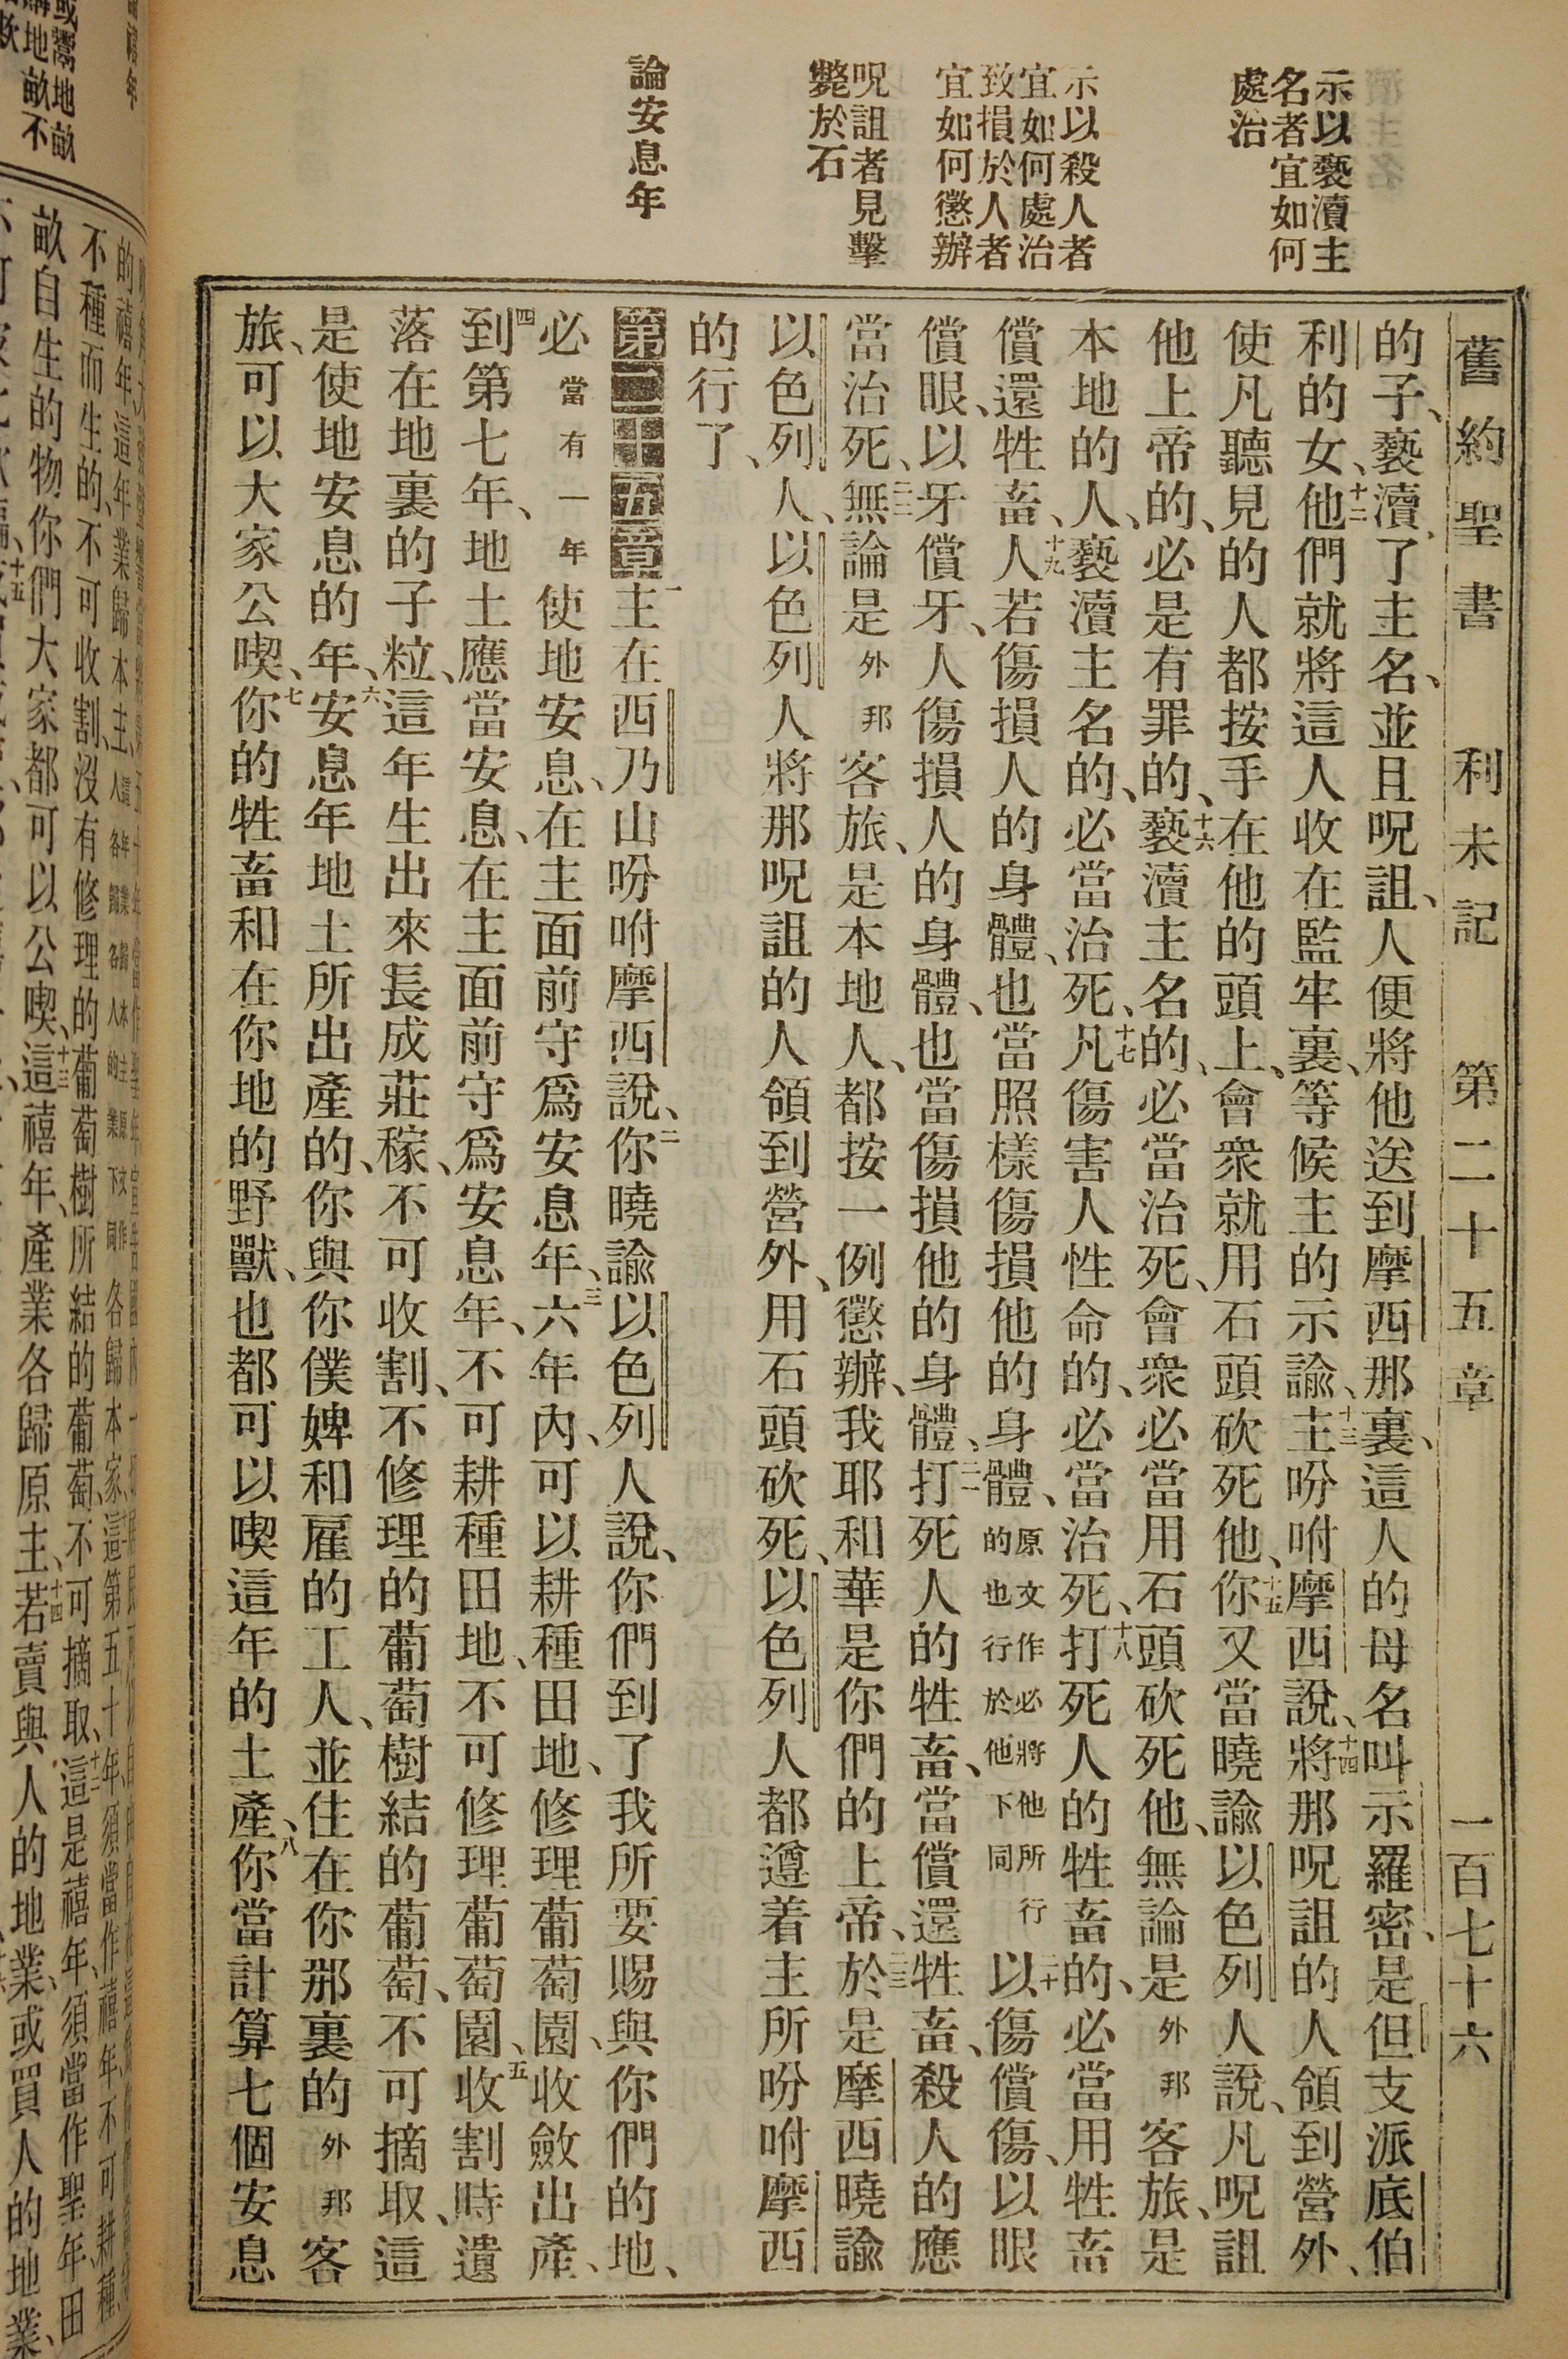 示以褻瀆主
名者宜如何
處治
示以殺人者
宜如何處治
致損於人者
宜如何懲辦
呪詛者見擊
斃於石
論安息年
舊約聖書 利未記 第二十五章 一百七十六
的子、褻瀆了主名、並且呪詛、人便將他送到摩西那裏、這人的母名叫示羅密、是但支派底伯
利的女、十二他們就將這人收在監牢裏、等候主的示諭、十三主吩咐摩西說、十四將那呪詛的人領到營外、
使凡聽見的人都按手在他的頭上、會衆就用石頭砍死他、十五你又當曉諭以色列人說、凡呪詛
他上帝的、必是有罪的、十六褻瀆主名的、必當治死、會衆必當用石頭砍死他、無論是外邦客旅、是
本地的人、褻瀆主名的、必當治死、十七凡傷害人性命的、必當治死、十八打死人的牲畜的、必當用牲畜
償還牲畜、十九人若傷損人的身體、也當照樣傷損他的身體、原文作必將他所行的也行於他下同二十以傷償傷、以眼
償眼、以牙償牙、人傷損人的身體、也當傷損他的身體、二一打死人的牲畜、當償還牲畜、殺人的應
當治死、二二無論是外邦客旅、是本地人、都按一例懲辦、我耶和華是你們的上帝、二三於是摩西曉諭
以色列人、以色列人將那呪詛的人領到營外、用石頭砍死、以色列人都遵着主所吩咐摩西
的行了、
第二十五章 一主在西乃山吩咐摩西說、二你曉諭以色列人說、你們到了我所要賜與你們的地、
必當有一年使地安息、在主面前守爲安息年、三六年內、可以耕種田地、修理葡萄園、收斂出產、
四到第七年、地土應當安息、在主面前守爲安息年、不可耕種田地、不可修理葡萄園、五收割時遺
落在地裏的子粒、這年生出來長成莊稼、不可收割、不修理的葡萄樹結的葡萄、不可摘取、這
是使地安息的年、六安息年地土所出產的、你與你僕婢和雇的工人、並住在你那裏的外邦客
旅、可以大家公喫、七你的牲畜和在你地的野獸、也都可以喫這年的土產、八你當計算七個安息
不種而生的、不可收割、沒有修理的葡萄樹所結的葡萄、不可摘取、十二這是禧年、須當作聖年、田
畝自生的物你們大家都可以公喫、十三這禧年、產業各歸原主、十四若賣與人的地業、或買人的地業、